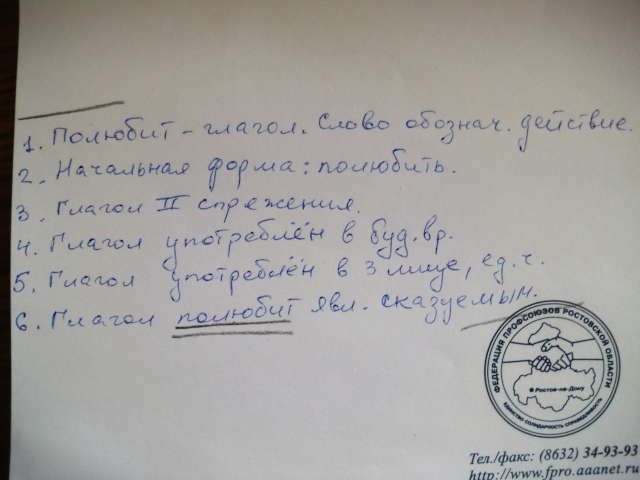 1. Полюбит - глагол. Слово обознач. действие.
2. Начальная форма: полюбить.
3. Глагол II спряжения.
4. Глагол употреблён в буд. вр.
5. Глагол употреблён в 3 лице, ед. ч.
6. Глагол полюбит явл. сказуемым.
ФЕДЕРАЦИЯ ПРОФСОЮЗОВ РОСТОВСКОЙ ОБЛАСТИ
Ростов-на-Дону
ЕДИНСТВО СОЛИДАРНОСТЬ СПРАВЕДЛИВОСТЬ
Тел./факс: (8632) 34-93-93
http://www.fpro.aaanet.ru